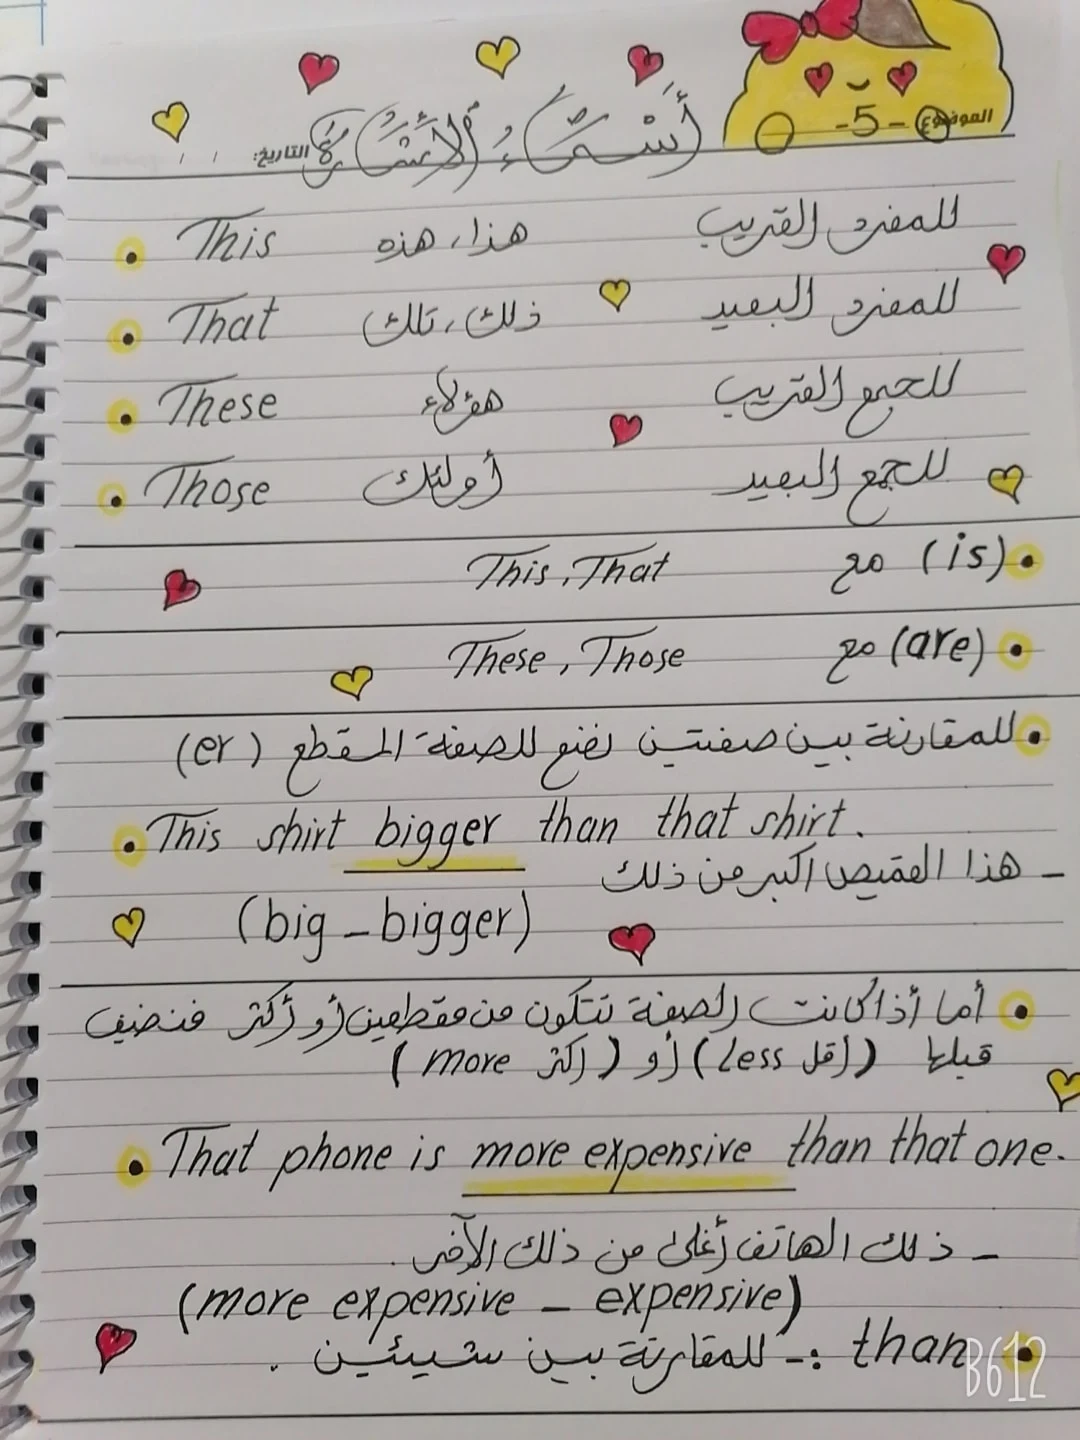 الموضوع -5-
التاريخ: / /
أسماء الإشارة
This هذا، هذه للمفرد القريب
That ذلك، تلك للمفرد البعيد
These هؤلاء للجمع القريب
Those أولئك للجمع البعيد
(is) مع This, That
(are) مع These, Those
للمقارنة بين صفتين نضع للصفة المقطع (er)
This shirt bigger than that shirt.
_ هذا القميص اكبر من ذلك
(big _ bigger)
أما أذا كانت الصفة تتكون من مقطعين أو أكثر فنضيف
قبلها (أقل less) أو (اكثر more)
That phone is more expensive than that one.
_ ذلك الهاتف أغلى من ذلك الآخر.
(more expensive _ expensive)
than :- للمقارنة بين شيئين.
B612